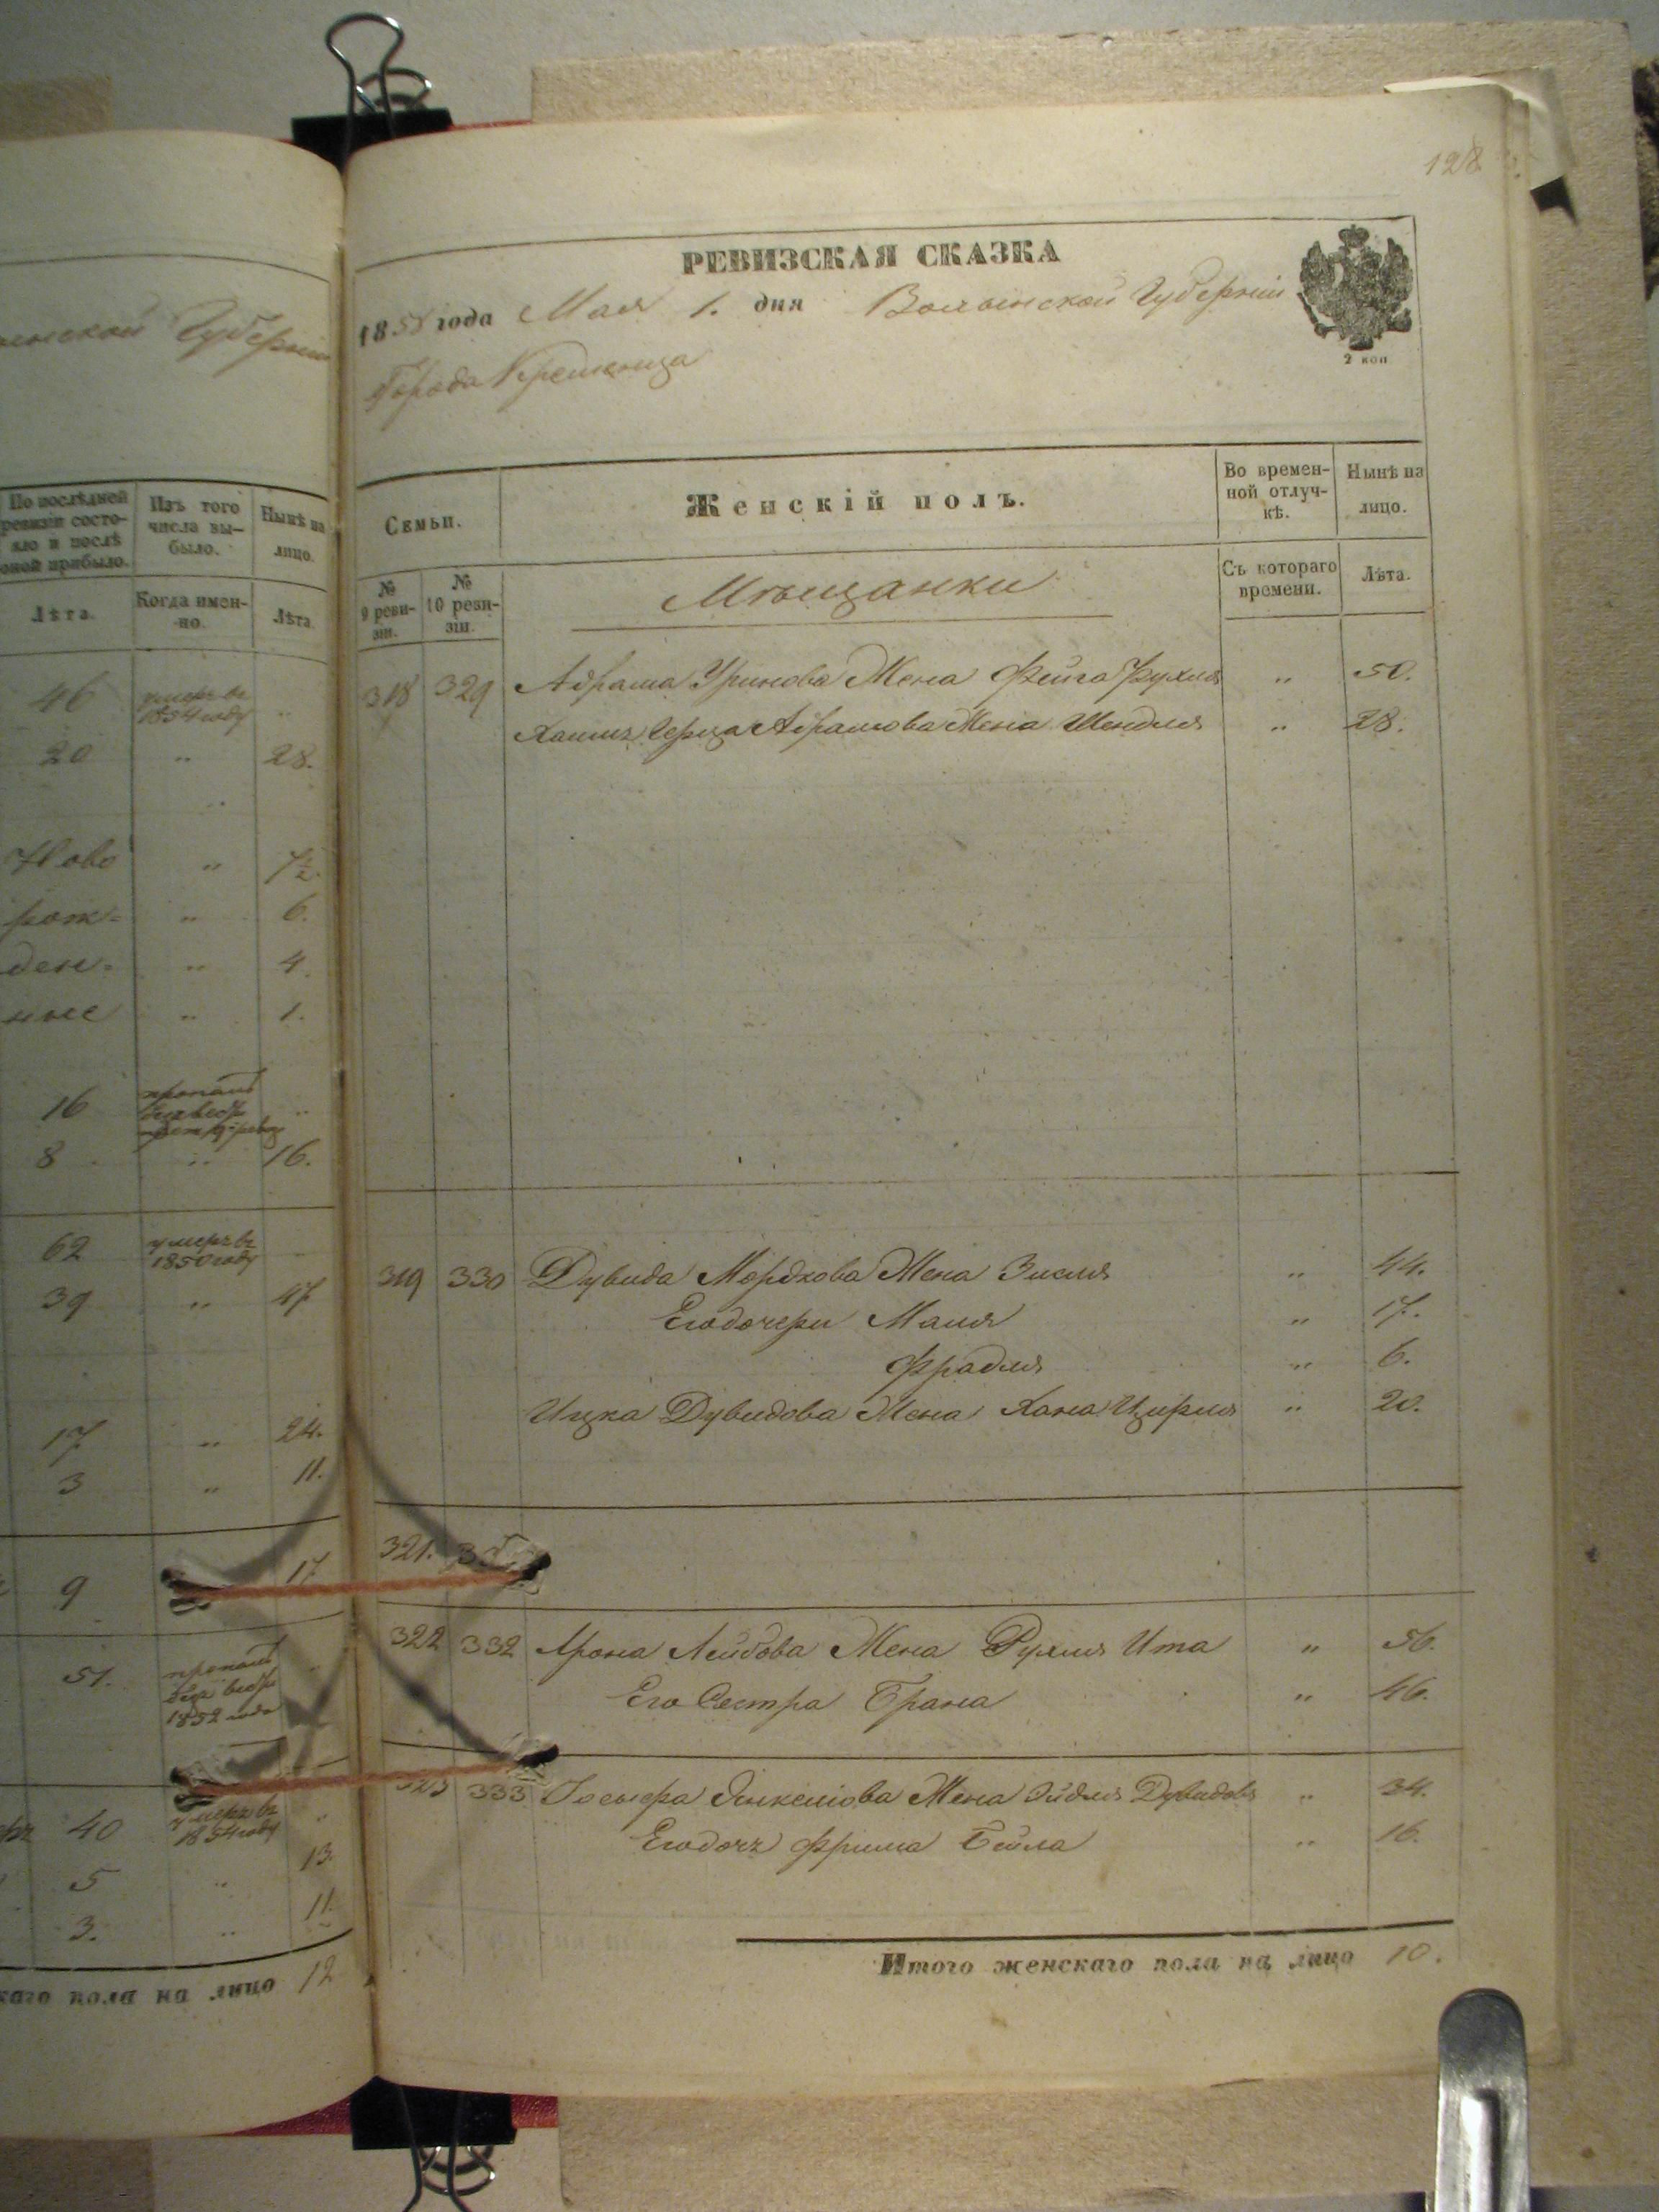 128
енской Губерніи
По послѣдней
ревизіи состо-
яло и послѣ
оной прибыло.
Изъ того
числа вы-
было.
Нынѣ на
лицо.
Лѣта.
Когда имен-
но.
Лѣта
46 умеръ въ 1854 году „
20 „ 28.
Ново „ 7½.
рож- „ 6.
ден- „ 4.
ные „ 1.
16 пропалъ „
8 „ 16.
62 умеръ въ 1850 году „
39 „ 47
17 „ 24.
3 „ 11.
9 17
51. пропалъ 1852 года „
40 умеръ въ 1854 году „
5 „ 13.
3. „ 11.
каго пола на лицо 12
РЕВИЗСКАЯ СКАЗКА
1858 года Мая 1. дня Волынской Губерніи
2 коп
Города Кременца
Семьи.
Женскій полъ.
Во времен-
ной отлуч-
кѣ.
Нынѣ на
лицо.
№
9 реви-
зіи.
№
10 реви-
зіи.
Мѣщанки
Съ котораго
времени.
Лѣта.
318 329 Абрама Уринова Жена Фейга Рухля „ 50.
Хаимъ Герца Абрамова Жена Шендля „ 28.
319 330 Дувида Мордкова Жена Зисля „ 44.
Его дочери Маля „ 17.
Фрадля „ 6.
Ицка Дувидова Жена Хана Цирля „ 20.
321.
322 332 Арона Лейбова Жена Рухля Ита „ 56.
Его Сестра Брана „ 46.
323 333 Іосьфа Янкелiова Жена Эйдля Дувидова „ 34.
Его дочь Фрима Бейла „ 16.
Итого женскаго пола на лицо 10.